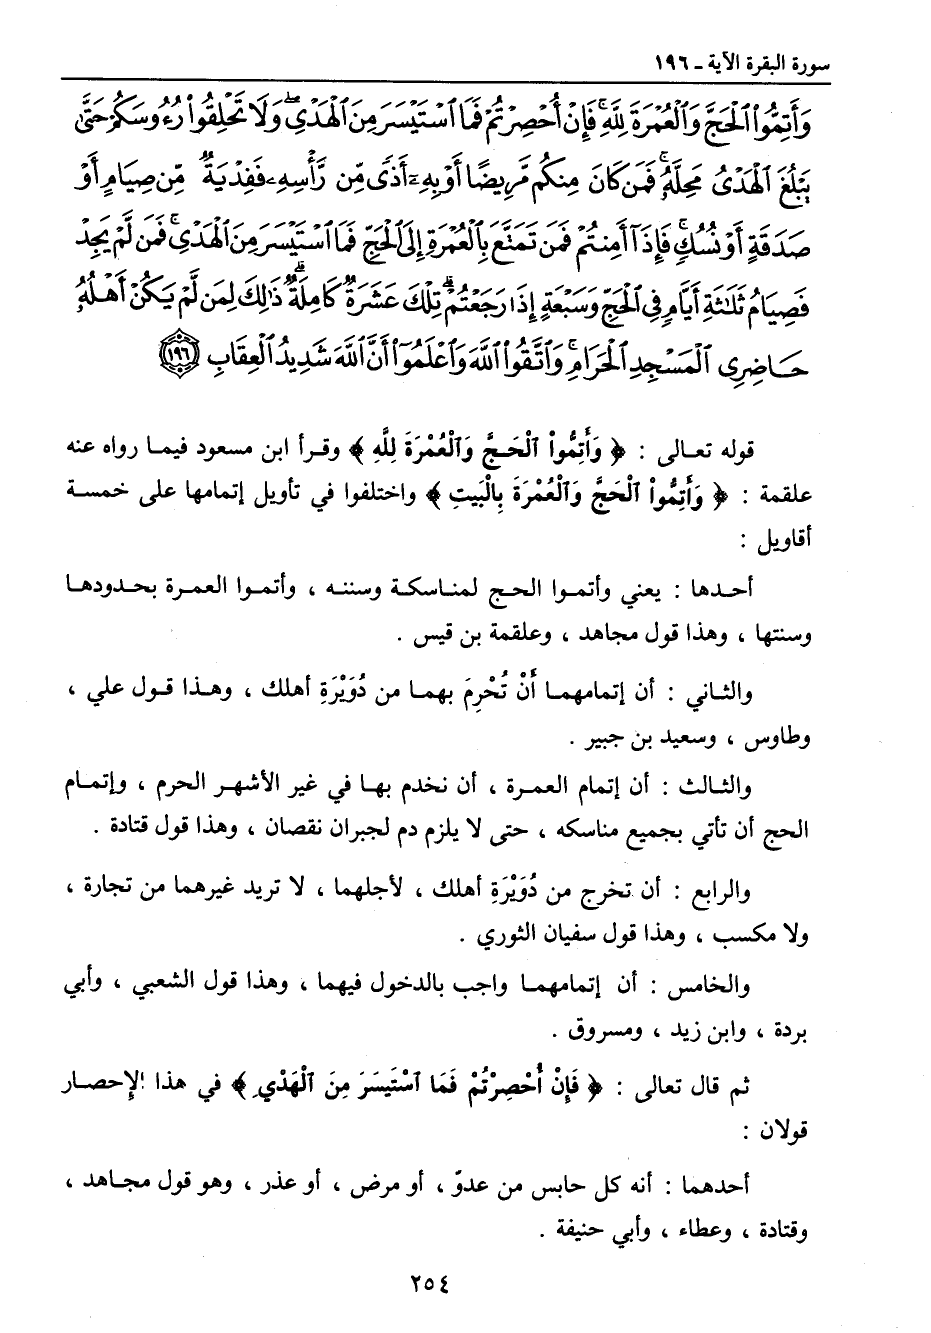 سورة البقرة الآية ـ ١٩٦
وَأَتِمُّوا۟ ٱلْحَجَّ وَٱلْعُمْرَةَ لِلَّهِ ۚ فَإِنْ أُحْصِرْتُمْ فَمَا ٱسْتَيْسَرَ مِنَ ٱلْهَدْىِ ۖ وَلَا تَحْلِقُوا۟ رُءُوسَكُمْ حَتَّىٰ
يَبْلُغَ ٱلْهَدْىُ مَحِلَّهُۥ ۚ فَمَن كَانَ مِنكُم مَّرِيضًا أَوْ بِهِۦٓ أَذًى مِّن رَّأْسِهِۦ فَفِدْيَةٌ مِّن صِيَامٍ أَوْ
صَدَقَةٍ أَوْ نُسُكٍ ۚ فَإِذَآ أَمِنتُمْ فَمَن تَمَتَّعَ بِٱلْعُمْرَةِ إِلَى ٱلْحَجِّ فَمَا ٱسْتَيْسَرَ مِنَ ٱلْهَدْىِ ۚ فَمَن لَّمْ يَجِدْ
فَصِيَامُ ثَلَـٰثَةِ أَيَّامٍ فِى ٱلْحَجِّ وَسَبْعَةٍ إِذَا رَجَعْتُمْ ۗ تِلْكَ عَشَرَةٌ كَامِلَةٌ ۗ ذَٰلِكَ لِمَن لَّمْ يَكُنْ أَهْلُهُۥ
حَاضِرِى ٱلْمَسْجِدِ ٱلْحَرَامِ ۚ وَٱتَّقُوا۟ ٱللَّهَ وَٱعْلَمُوٓا۟ أَنَّ ٱللَّهَ شَدِيدُ ٱلْعِقَابِ ١٩٦
قوله تعالى : ﴿ وَأَتِمُّوا۟ ٱلْحَجَّ وَٱلْعُمْرَةَ لِلَّهِ ﴾ وقرأ ابن مسعود فيما رواه عنه
علقمة : ﴿ وَأَتِمُّوا۟ ٱلْحَجَّ وَٱلْعُمْرَةَ بِالْبَيتِ ﴾ واختلفوا في تأويل إتمامها على خمسة
أقاويل :
أحدها : يعني وأتموا الحج لمناسكة وسننه ، وأتموا العمرة بحدودها
وسنتها ، وهذا قول مجاهد ، وعلقمة بن قيس .
والثاني : أن إتمامهما أَنْ تُحْرِمَ بهما من دُوَيْرَةِ أهلك ، وهذا قول علي ،
وطاوس ، وسعيد بن جبير .
والثالث : أن إتمام العمرة ، أن نخدم بها في غير الأشهر الحرم ، وإتمام
الحج أن تأتي بجميع مناسكه ، حتى لا يلزم دم لجبران نقصان ، وهذا قول قتادة .
والرابع : أن تخرج من دُوَيْرَةِ أهلك ، لأجلهما ، لا تريد غيرهما من تجارة ،
ولا مكسب ، وهذا قول سفيان الثوري .
والخامس : أن إتمامهما واجب بالدخول فيهما ، وهذا قول الشعبي ، وأبي
بردة ، وابن زيد ، ومسروق .
ثم قال تعالى : ﴿ فَإِنْ أُحْصِرْتُمْ فَمَا ٱسْتَيْسَرَ مِنَ ٱلْهَدْيِ ﴾ في هذا الإحصار
قولان :
أحدهما : أنه كل حابس من عدوّ ، أو مرض ، أو عذر ، وهو قول مجاهد ،
وقتادة ، وعطاء ، وأبي حنيفة .
٢٥٤